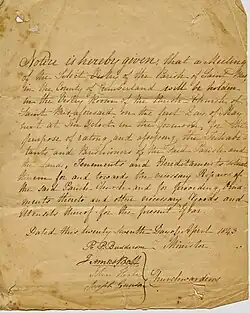 Notice is hereby given, that a Meeting
of the Select Vestry of the Parish of Saint
in the County of Cumberland will be holden
in the Vestry Room of the Parish Church of
Saint Bees aforesaid on the first Day of May
next at Ten o'Clock in the forenoon, for the
purpose of rating and assessing the Inhabi-
tants and Parishioners of the said Parish and
the Lands, Tenements and Hereditaments
therein for and towards the necessary Repairs of
the said Parish Church and for providing
and other necessary Goods and
thereof for the present Year.
Dated this twenty seventh Day of April 1843
Minister
James
John
Joseph
Churchwardens